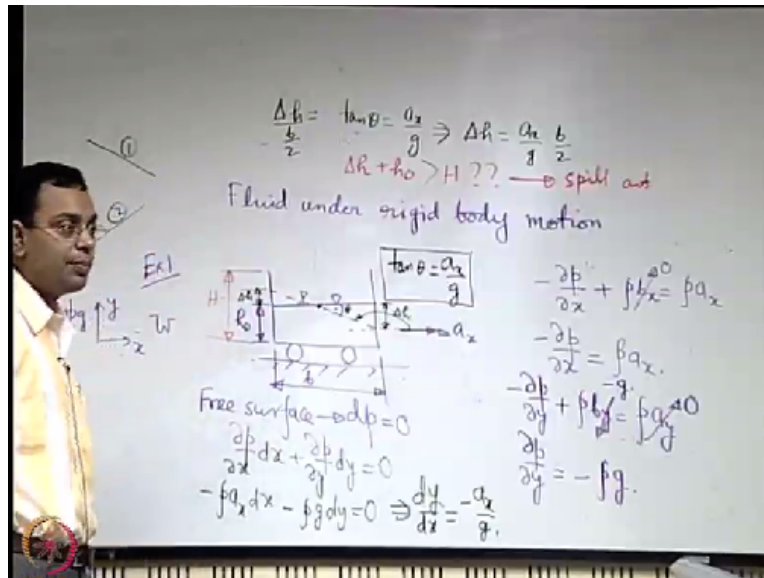 Δh/(b/2) = tanθ = aₓ/g ⇒ Δh = aₓ/g b/2
Δh + h₀ > H ?? → spill out
①
②
Fluid under rigid body motion
Ex1
y
x
W
H
Δh
h₀
P
θ
Δh
aₓ
b
tanθ = aₓ/g
Free surface → dp = 0
∂p/∂x dx + ∂p/∂y dy = 0
-ρaₓdx - ρgdy = 0 ⇒ dy/dx = -aₓ/g.
-∂p/∂x + ρbₓ↗0 = ρaₓ
-∂p/∂x = ρaₓ.
-∂p/∂y + ρb_y↗-g. = ρa_y↗0
∂p/∂y = -ρg.